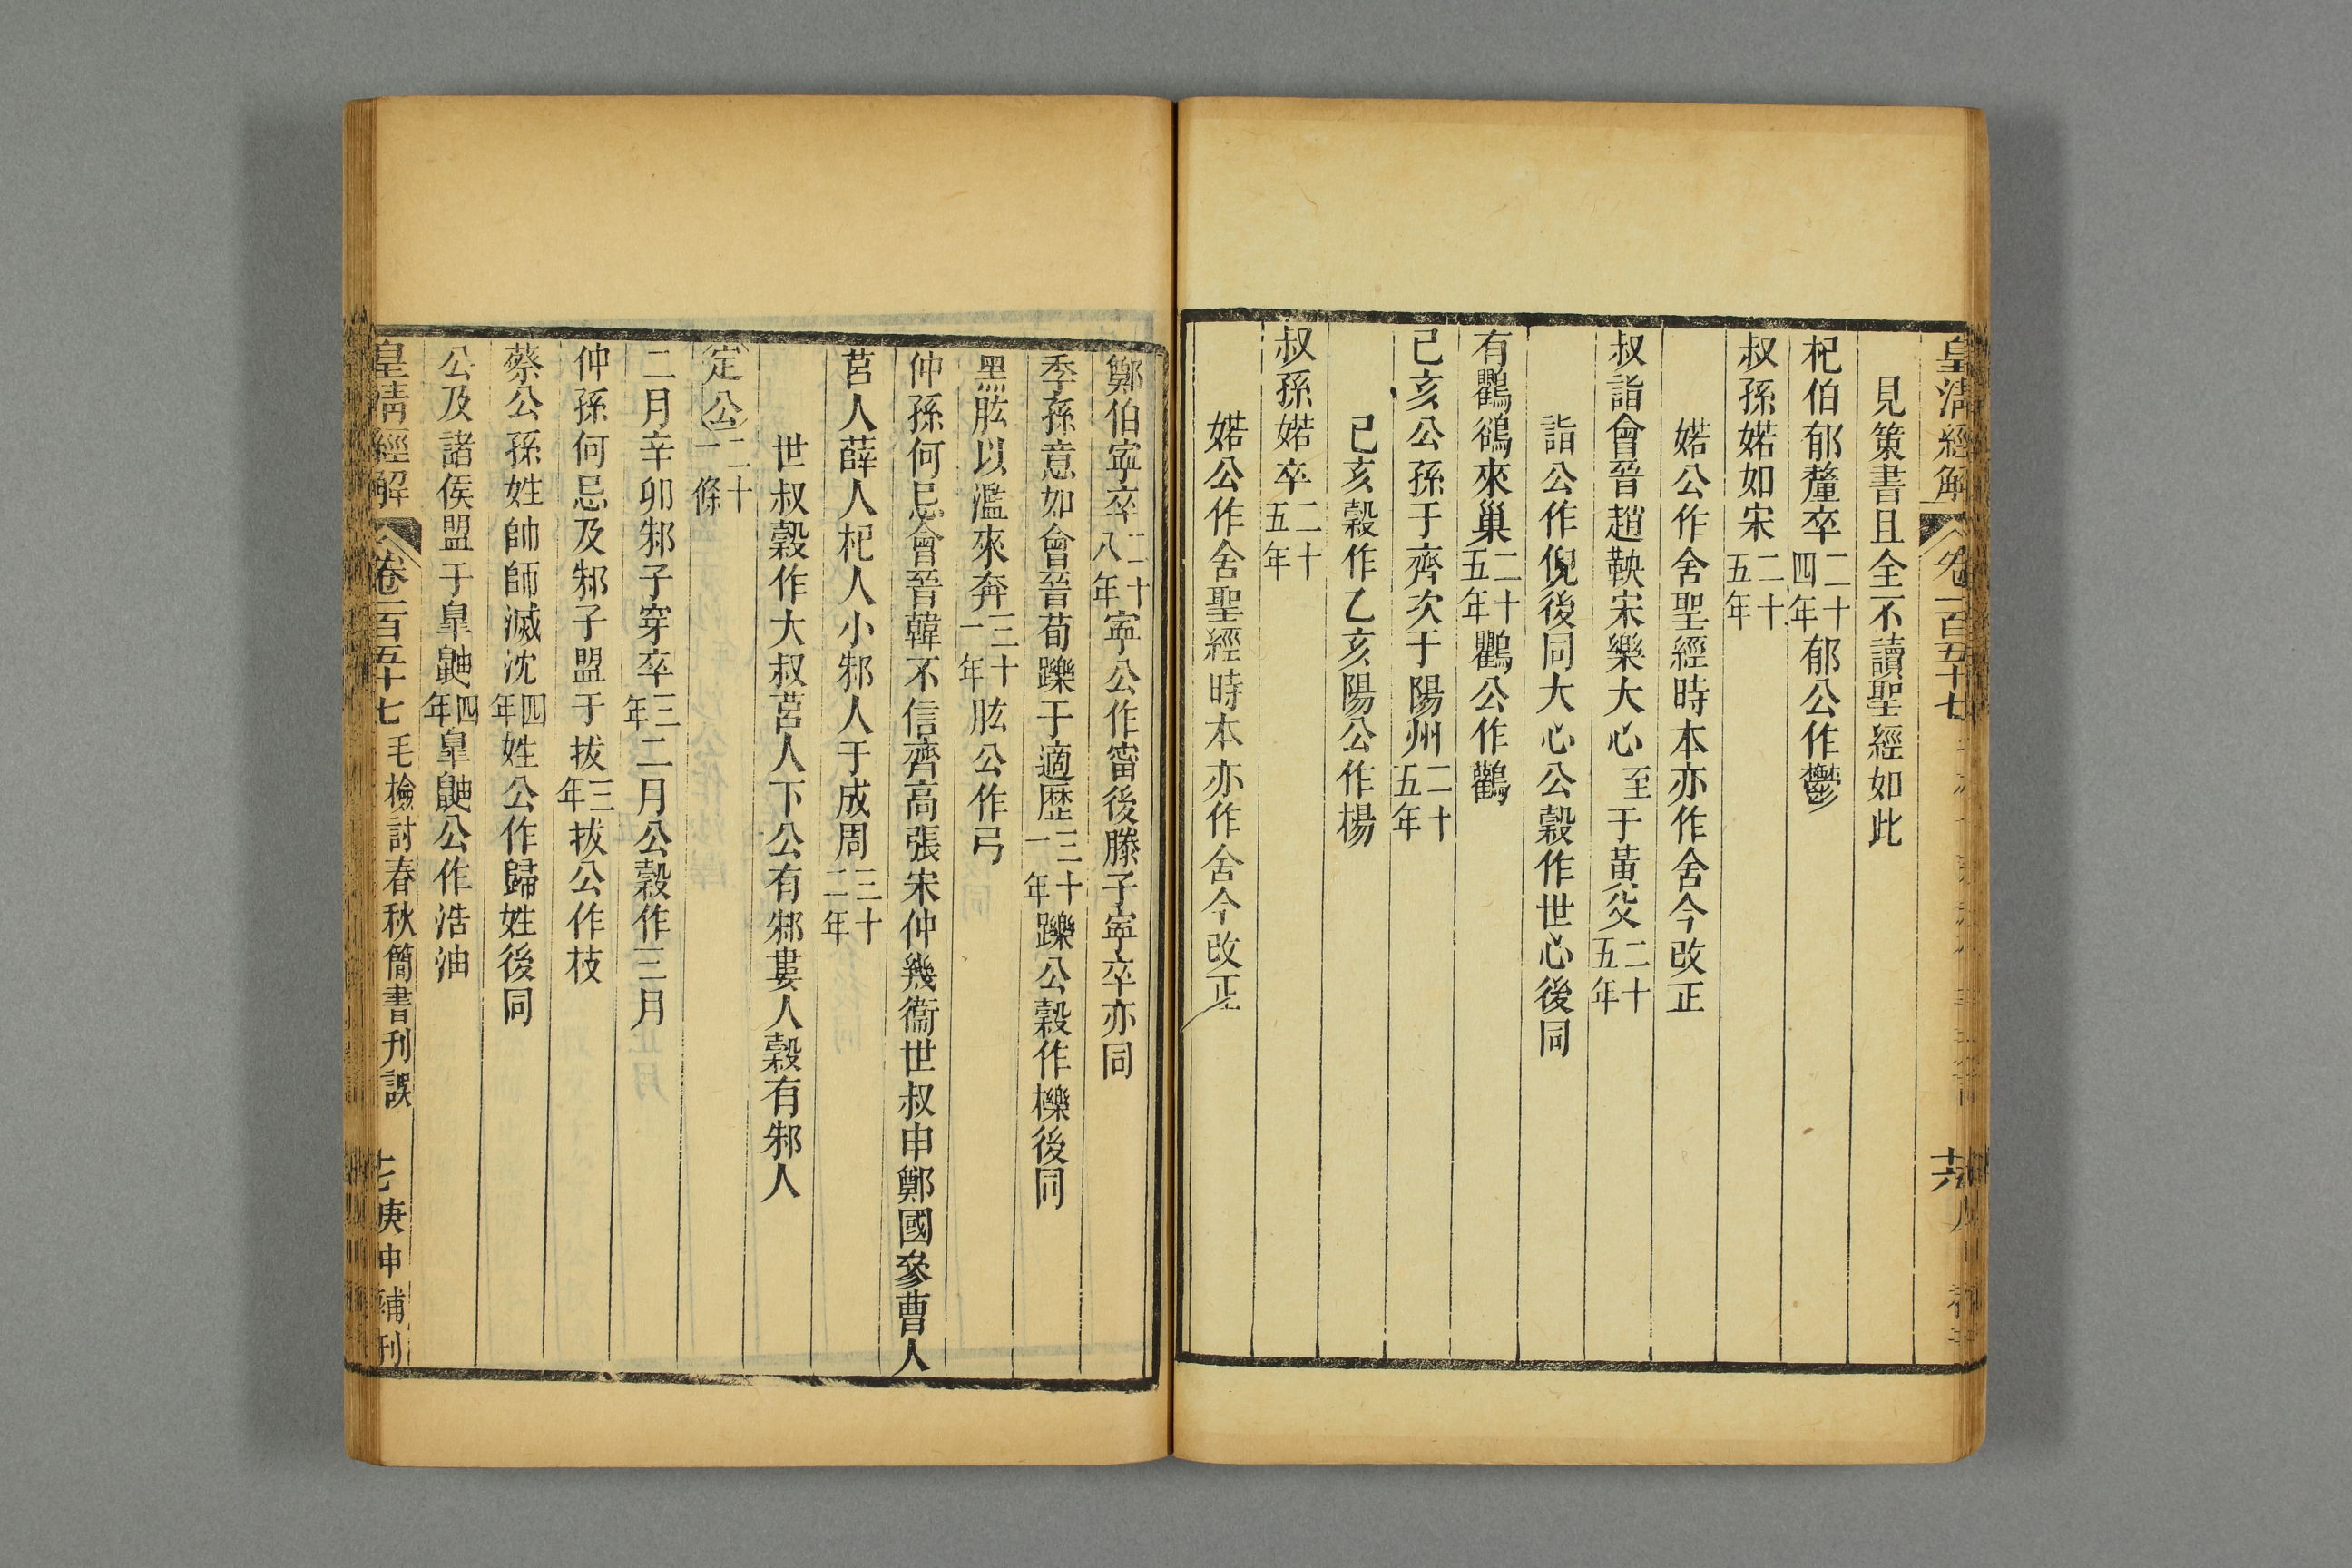 皇清經解 卷一百五十七
見策書且全不讀聖經如此
杞伯郁釐卒二十四年郁公作鬱
叔孫婼如宋二十五年
婼公作舍聖經時本亦作舍今改正
叔詣會晉趙鞅宋樂大心至于黃父二十五年
詣公作倪後同大心公穀作世心後同
有鸜鵒來巢二十五年鸜公作鸛
己亥公孫于齊次于陽州二十五年
己亥穀作乙亥陽公作楊
叔孫婼卒二十五年
婼公作舍聖經時本亦作舍今改正
鄭伯寧卒二十八年寧公作甯後滕子寧卒亦同
季孫意如會晉荀躒于適歷三十一年躒公穀作櫟後同
黑肱以濫來奔三十一年肱公作弓
仲孫何忌會晉韓不信齊高張宋仲幾衞世叔申鄭國參曹人
莒人薛人杞人小邾人于成周三十二年
世叔穀作大叔莒人下公有邾婁人穀有邾人
定公二十一條
二月辛卯邾子穿卒三年二月公穀作三月
仲孫何忌及邾子盟于拔三年拔公作枝
蔡公孫姓帥師滅沈四年姓公作歸姓後同
公及諸侯盟于皐鼬四年皐鼬公作浩油
皇清經解 卷一百五十七 毛檢討春秋簡書刊誤 七 庚申補刊